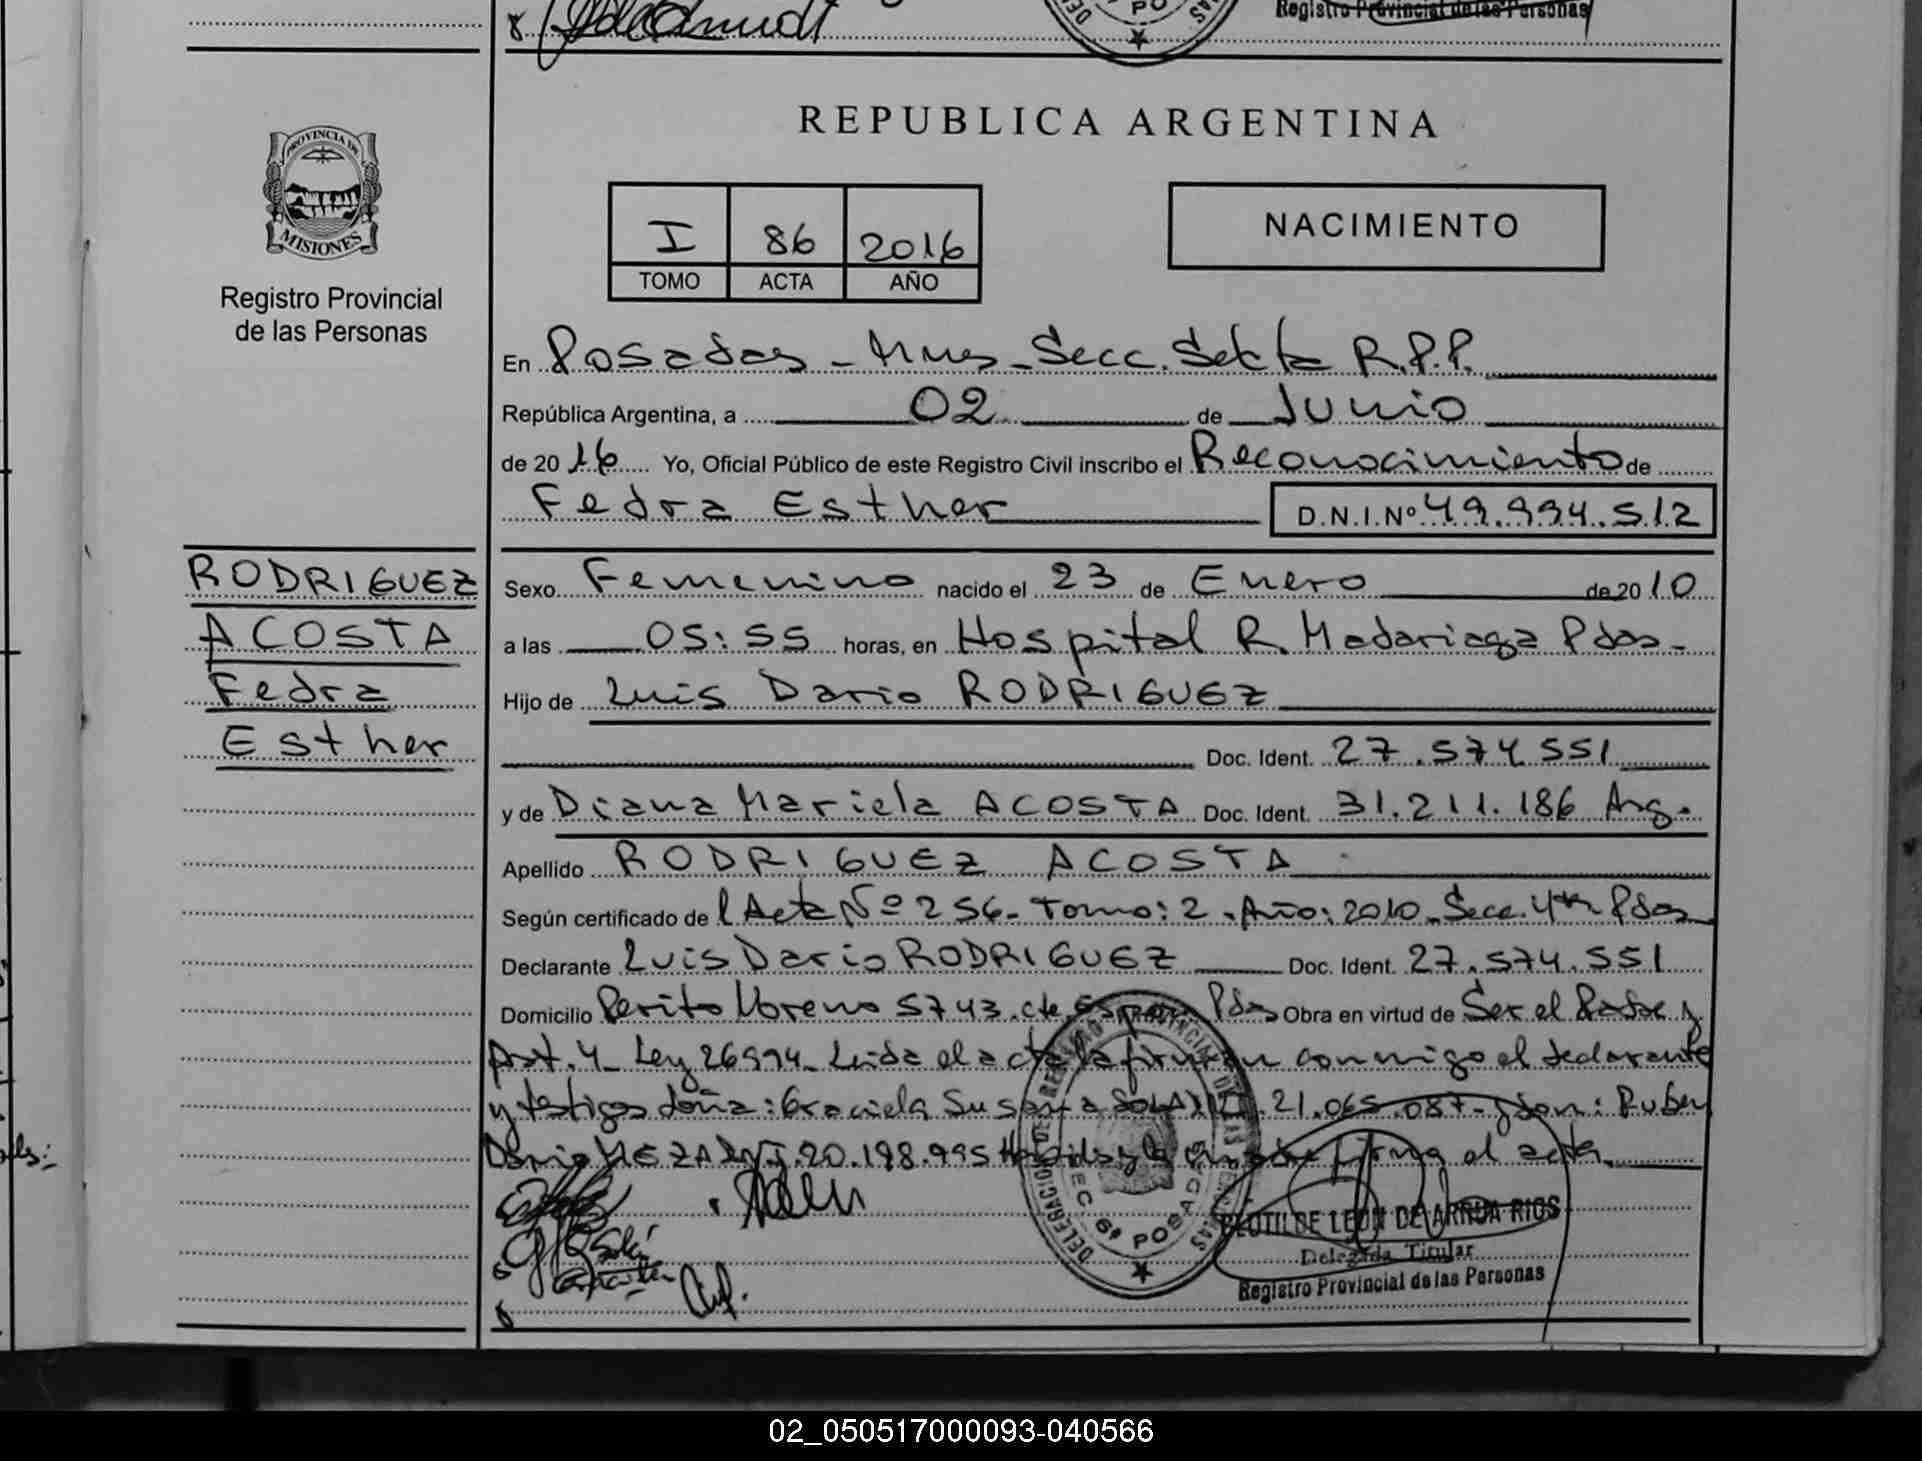 Registro Provincial de las Personas
REPUBLICA ARGENTINA
PROVINCIA DE
MISIONES
Registro Provincial
de las Personas
I 86 2016
TOMO ACTA AÑO
NACIMIENTO
En Posadas - Mnes - Secc. Sexta R.P.P.
República Argentina, a 02 de Junio
de 2016 Yo, Oficial Público de este Registro Civil inscribo el Reconocimiento de
Fedra Esther D.N.I.Nº 49.994.512
RODRIGUEZ
ACOSTA
Fedra
Esther
Sexo Femenino nacido el 23 de Enero de 2010
a las 05:55 horas, en Hospital R. Madariaga Pdas-
Hijo de Luis Dario RODRIGUEZ
Doc. Ident. 27.574.551
y de Diana Mariela ACOSTA Doc. Ident. 31.211.186 Arg.
Apellido RODRIGUEZ ACOSTA
Según certificado de l Acta Nº 256- Tomo: 2 - Año: 2010 - Secc. 4ta Pdas
Declarante Luis Dario RODRIGUEZ Doc. Ident. 27.574.551
Domicilio Perito Moreno 5743. Pdas Obra en virtud de Ser el Padre y
Art. 4 - Ley 26994 - Leida el acta la firman conmigo el declarante
y testigos doña: Graciela Susana 21.065.087- y don: Ruben
Dario MEZA DNI. 20.198.995 firma el acta.
DELEGACION DE REGISTRO PROVINCIAL DE LAS PERSONAS
SEC 6ª POSADAS
CLOTILDE LEON DE ARRUA RIOS
Delegada Titular
Registro Provincial de las Personas
02_050517000093-040566